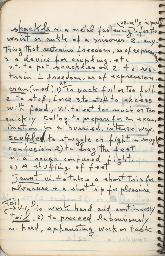 usually in pair
shackle n. a metal fastening for the
wrist or ankle of a prisoner 2. any
thing that restrains freedom, as of expression
3. a device for coupling, etc.
v. 1. to put shackles on 2. to res-
train in freedom, as of expression
cram (mmed) 1) to pack full or too full
2. to stuff, force 3. to stuff to excess
with food, vi. to eat too much or
quickly. Colloq. to prepare for an exam-
ination in a hurried, intense way.
scuffle v. to struggle or fight in rough
confusion 2. to drag the feet
n. a rough confused fight.
2) a shuffling of feet.
jaunt vi. to take a short trip for
pleasure n. a short trip for pleasure
toil vi. to work hard and continuously
2) to proceed laboriously
n. hard, exhausting work or task